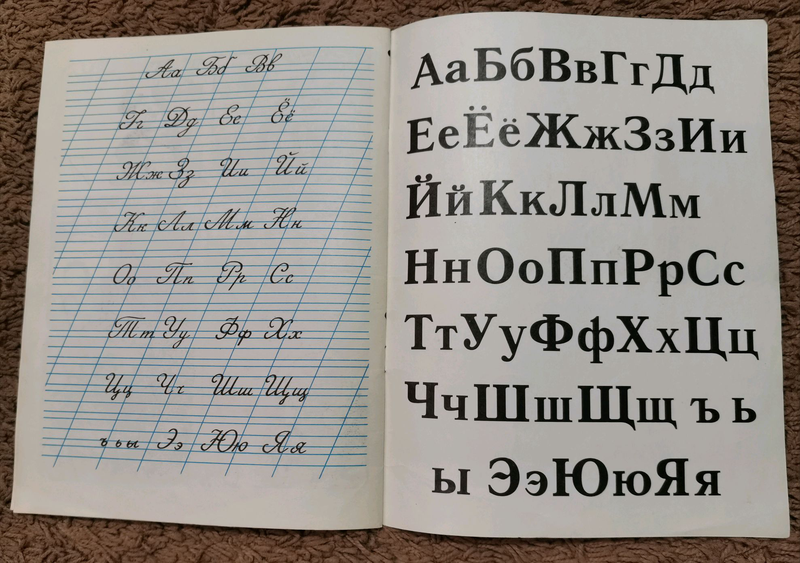 Аа Бб Вв
Гг Дд Ее Ёё
Жж Зз Ии Йй
Кк Лл Мм Нн
Оо Пп Рр Сс
Тт Уу Фф Хх
Цц Чч Шш Щщ
ъ ь ы Ээ Юю Яя
АаБбВвГгДд
ЕеЁёЖжЗзИи
ЙйКкЛлМм
НнОоПпРрСс
ТтУуФфХхЦц
ЧчШшЩщ ъ ь
ы ЭэЮюЯя